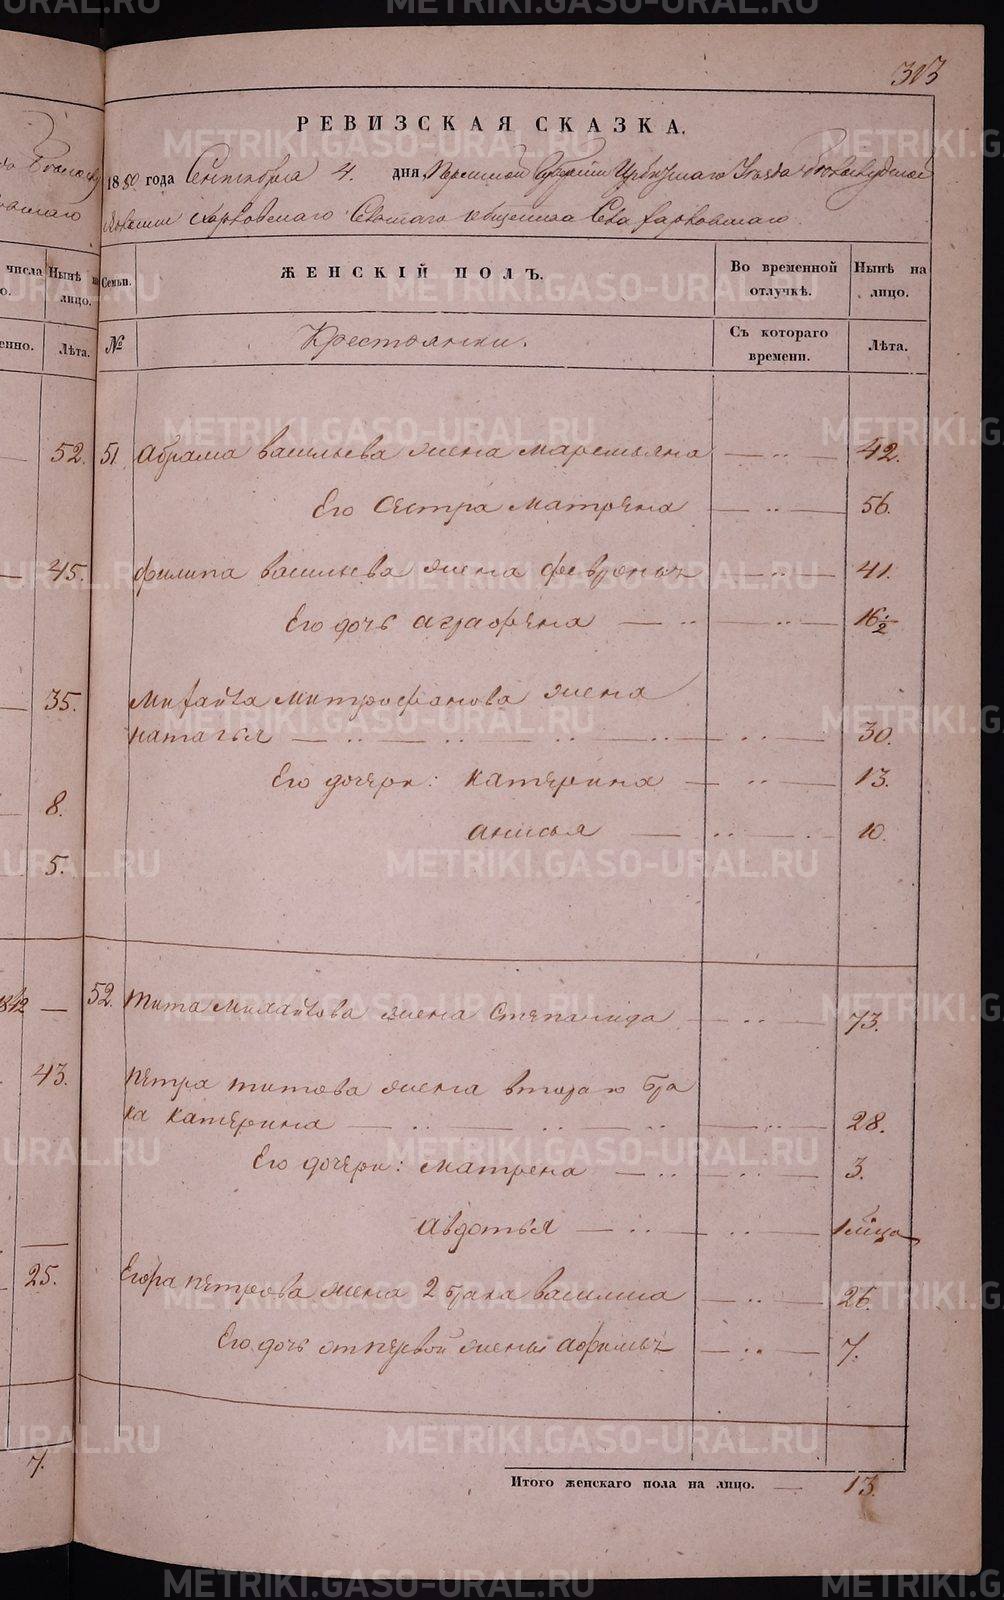 313
РЕВИЗСКАЯ СКАЗКА.
1850 года Сентября 4. дня, Пермской Губернии Ирбитскаго Уезда
Харловскаго Сельскаго общества Села Харловскаго.
числа Нынѣ на лицо. Семьи. ЖЕНСКІЙ ПОЛЪ. Во временной отлучкѣ. Нынѣ на лицо.
Лѣта. № Крестьянки. Съ котораго времени. Лѣта.
52. 51 Абрама Васильева жена Маремьяна 42.
Его сестра Матрена 56.
45. Филипа Васильева жена Февронья 41.
Его дочь Аграфена 16½
35. Михайла Митрофанова жена
Наталья 30.
Его дочери: Катерина 13.
8. Анисья 10.
5.
1842 52. Тита Михайлова жена Степанида 73.
43. Петра Титова жена втораго бра
ка Катерина 28.
Его дочери: Матрена 3.
Авдотья
25. Егора Петрова жена 2 брака Василиса 26.
Его дочь от первой жены Афимья 7.
7.
Итого женскаго пола на лицо. 13.
METRIKI.GASO-URAL.RU